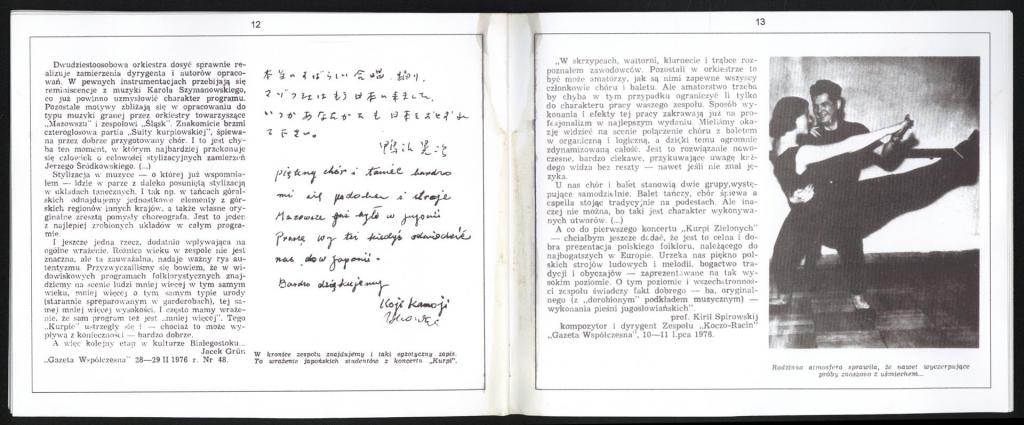 12
Dwudziestoosobowa orkiestra dosyć sprawnie re-
alizuje zamierzenia dyrygenta i autorów opraco-
wań. W pewnych instrumentacjach przebijają się
reminiscencje z muzyki Karola Szymanowskiego,
co już powinno uzmysłowić charakter programu.
Pozostałe motywy zbliżają się w opracowaniu do
typu muzyki granej przez orkiestry towarzyszące
„Mazowszu" i zespołowi „Śląsk". Znakomicie brzmi
czterogłosowa partia „Suity kurpiowskiej", śpiewa-
na przez dobrze przygotowany chór. I to jest chy-
ba ten moment, w którym najbardziej przekonuje
się człowiek o celowości stylizacyjnych zamierzeń
Jerzego Śródkowskiego. (...)
Stylizacja w muzyce — o której już wspomnia-
łem — idzie w parze z daleko posuniętą stylizacją
w układach tanecznych. I tak np. w tańcach góral-
skich odnajdujemy jednostkowe elementy z gór-
skich regionów innych krajów, a także własne ory-
ginalne zresztą pomysły choreografa. Jest to jeden
z najlepiej zrobionych układów w całym progra-
mie.
I jeszcze jedna rzecz, dodatnio wpływająca na
ogólne wrażenie. Różnica wieku w zespole nie jest
znaczna, ale ta zauważalna, nadaje ważny rys au-
tentyzmu. Przyzwyczailiśmy się bowiem, że w wi-
dowiskowych programach folklorystycznych znaj-
dziemy na scenie ludzi mniej więcej w tym samym
wieku, mniej więcej o tym samym typie urody
(starannie spreparowanym w garderobach), tej sa-
mej mniej więcej wysokości. I często mamy wraże-
nie, że sam program też jest „mniej więcej". Tego
„Kurpie" ustrzegły się i — chociaż to może wy-
pływa z konieczności — bardzo dobrze.
A więc kolejny etap w kulturze Białegostoku...
Jacek Grün
„Gazeta Współczesna" 28—29 II 1976 r. Nr 48.
本当にすばらしい合唱、踊り、
マゾフシェはもう日本に来ました。
いつかあなたがたも日本をおとずれ
て下さい。
piękny chór i taniec bardzo
mi się podobał i stroje
Mazowsze już było w japonii
Proszę wy też kiedyś odwiedzić
nas do w japonii.
Bardzo dziękujemy
Koji Kamoji
W kronice zespołu znajdujemy i taki egzotyczny zapis.
To wrażenie japońskich studentów z koncertu „Kurpi".
13
„W skrzypcach, waltorni, klarnecie i trąbce roz-
poznałem zawodowców. Pozostali w orkiestrze to
być może amatorzy, jak są nimi zapewne wszyscy
członkowie chóru i baletu. Ale amatorstwo trzeba
by chyba w tym przypadku ograniczyć li tylko
do charakteru pracy waszego zespołu. Sposób wy-
konania i efekty tej pracy zakrawają już na pro-
fesjonalizm w najlepszym wydaniu. Mieliśmy oka-
zję widzieć na scenie połączenie chóru z baletem
w organiczną i logiczną, a dzięki temu ogromnie
zdynamizowaną całość. Jest to rozwiązanie nowo-
czesne, bardzo ciekawe, przykuwające uwagę każ-
dego widza bez reszty — nawet jeśli nie znał ję-
zyka.
U nas chór i balet stanowią dwie grupy, wystę-
pujące samodzielnie. Balet tańczy, chór śpiewa a
capella stojąc tradycyjnie na podestach. Ale ina-
czej nie można, bo taki jest charakter wykonywa-
nych utworów. (...)
A co do pierwszego koncertu „Kurpi Zielonych"
— chciałbym jeszcze dodać, że jest to celna i do-
bra prezentacja polskiego folkloru, należącego do
najbogatszych w Europie. Urzeka nas piękno pol-
skich strojów ludowych i melodii, bogactwo tra-
dycji i obyczajów — zaprezentowane na tak wy-
sokim poziomie. O tym poziomie i wszechstronnoś-
ci zespołu świadczy fakt dobrego — ba, oryginal-
nego (z „dorobionym" podkładem muzycznym) —
wykonania pieśni jugosłowiańskich"
prof. Kiril Spirowskij
kompozytor i dyrygent Zespołu „Koczo-Racin"
„Gazeta Współczesna", 10—11 lipca 1976.
Rodzinna atmosfera sprawiła, że nawet wyczerpujące
próby znoszono z uśmiechem...